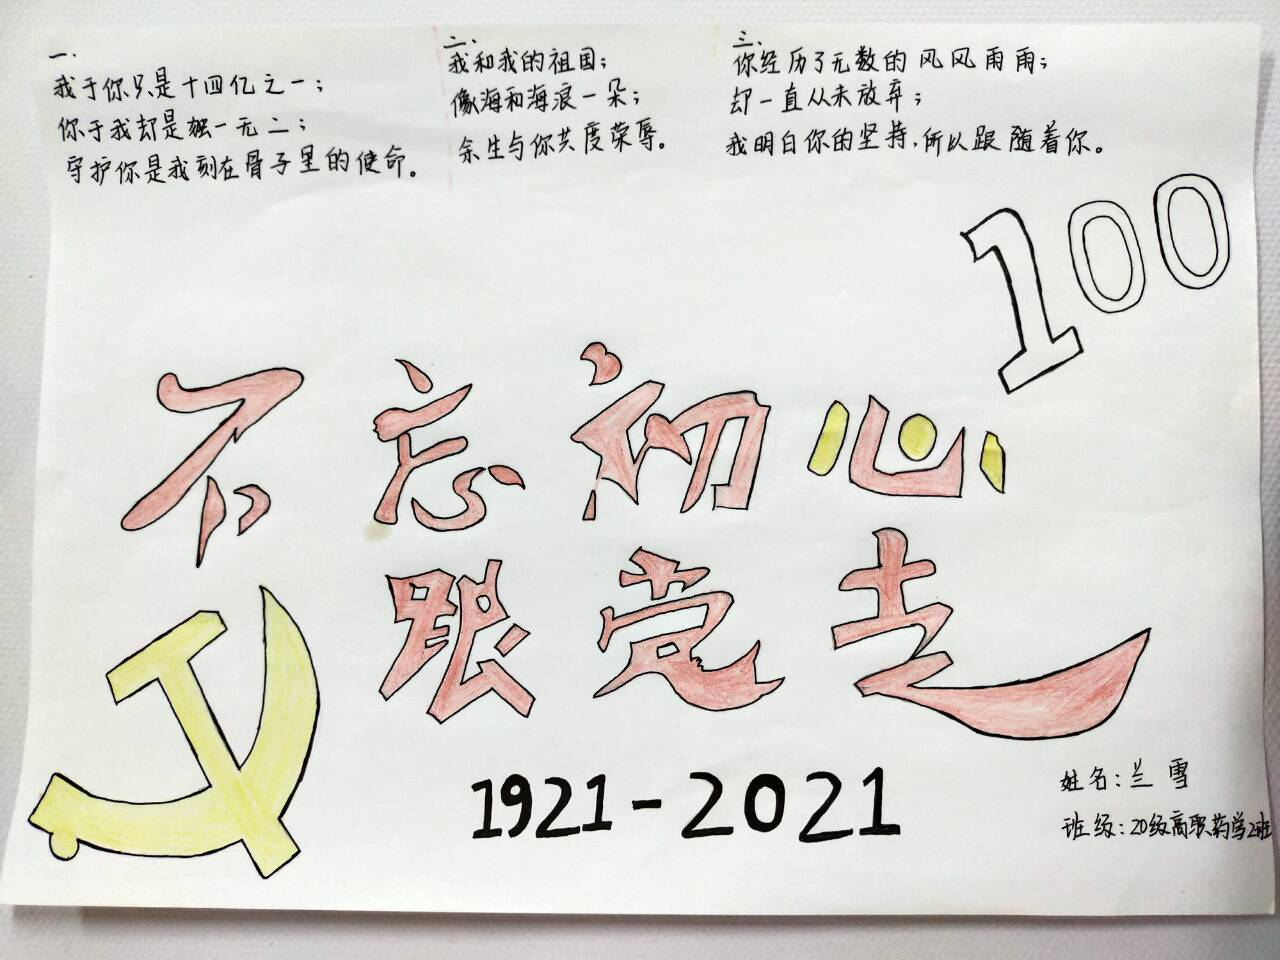 一、
我于你只是十四亿之一；
你于我却是独一无二；
守护你是我刻在骨子里的使命。
二、
我和我的祖国；
像海和海浪一朵；
余生与你共度荣辱。
三、
你经历了无数的风风雨雨；
却一直从未放弃；
我明白你的坚持，所以跟随着你。
100
不忘初心
跟党走
1921-2021
姓名：兰雪
班级：20级高职药学2班